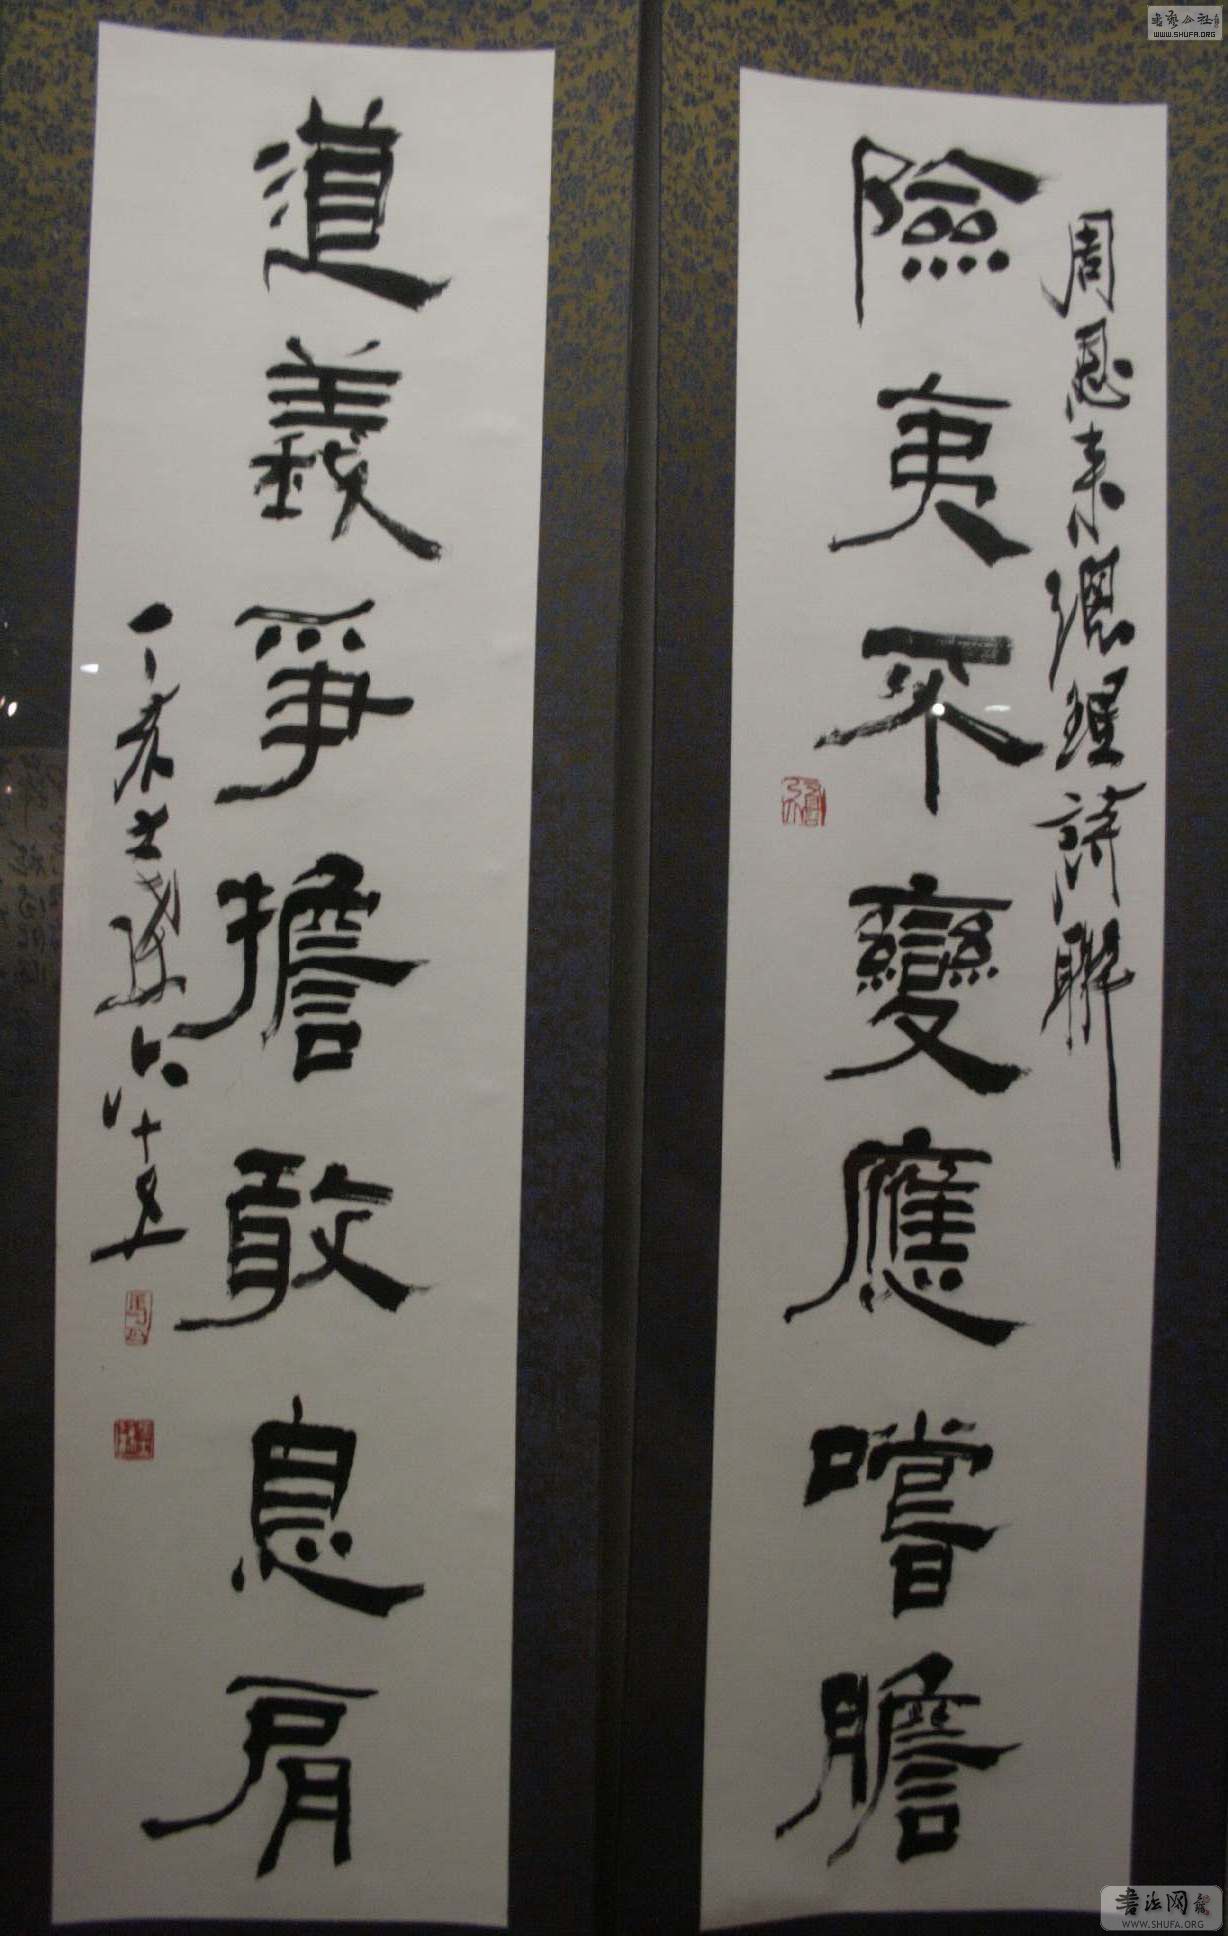 周恩来總理詩聯
險夷不變應嘗膽
道義爭擔敢息肩
丁亥
六十五
WWW.SHUFA.ORG
书法网
WWW.SHUFA.ORG